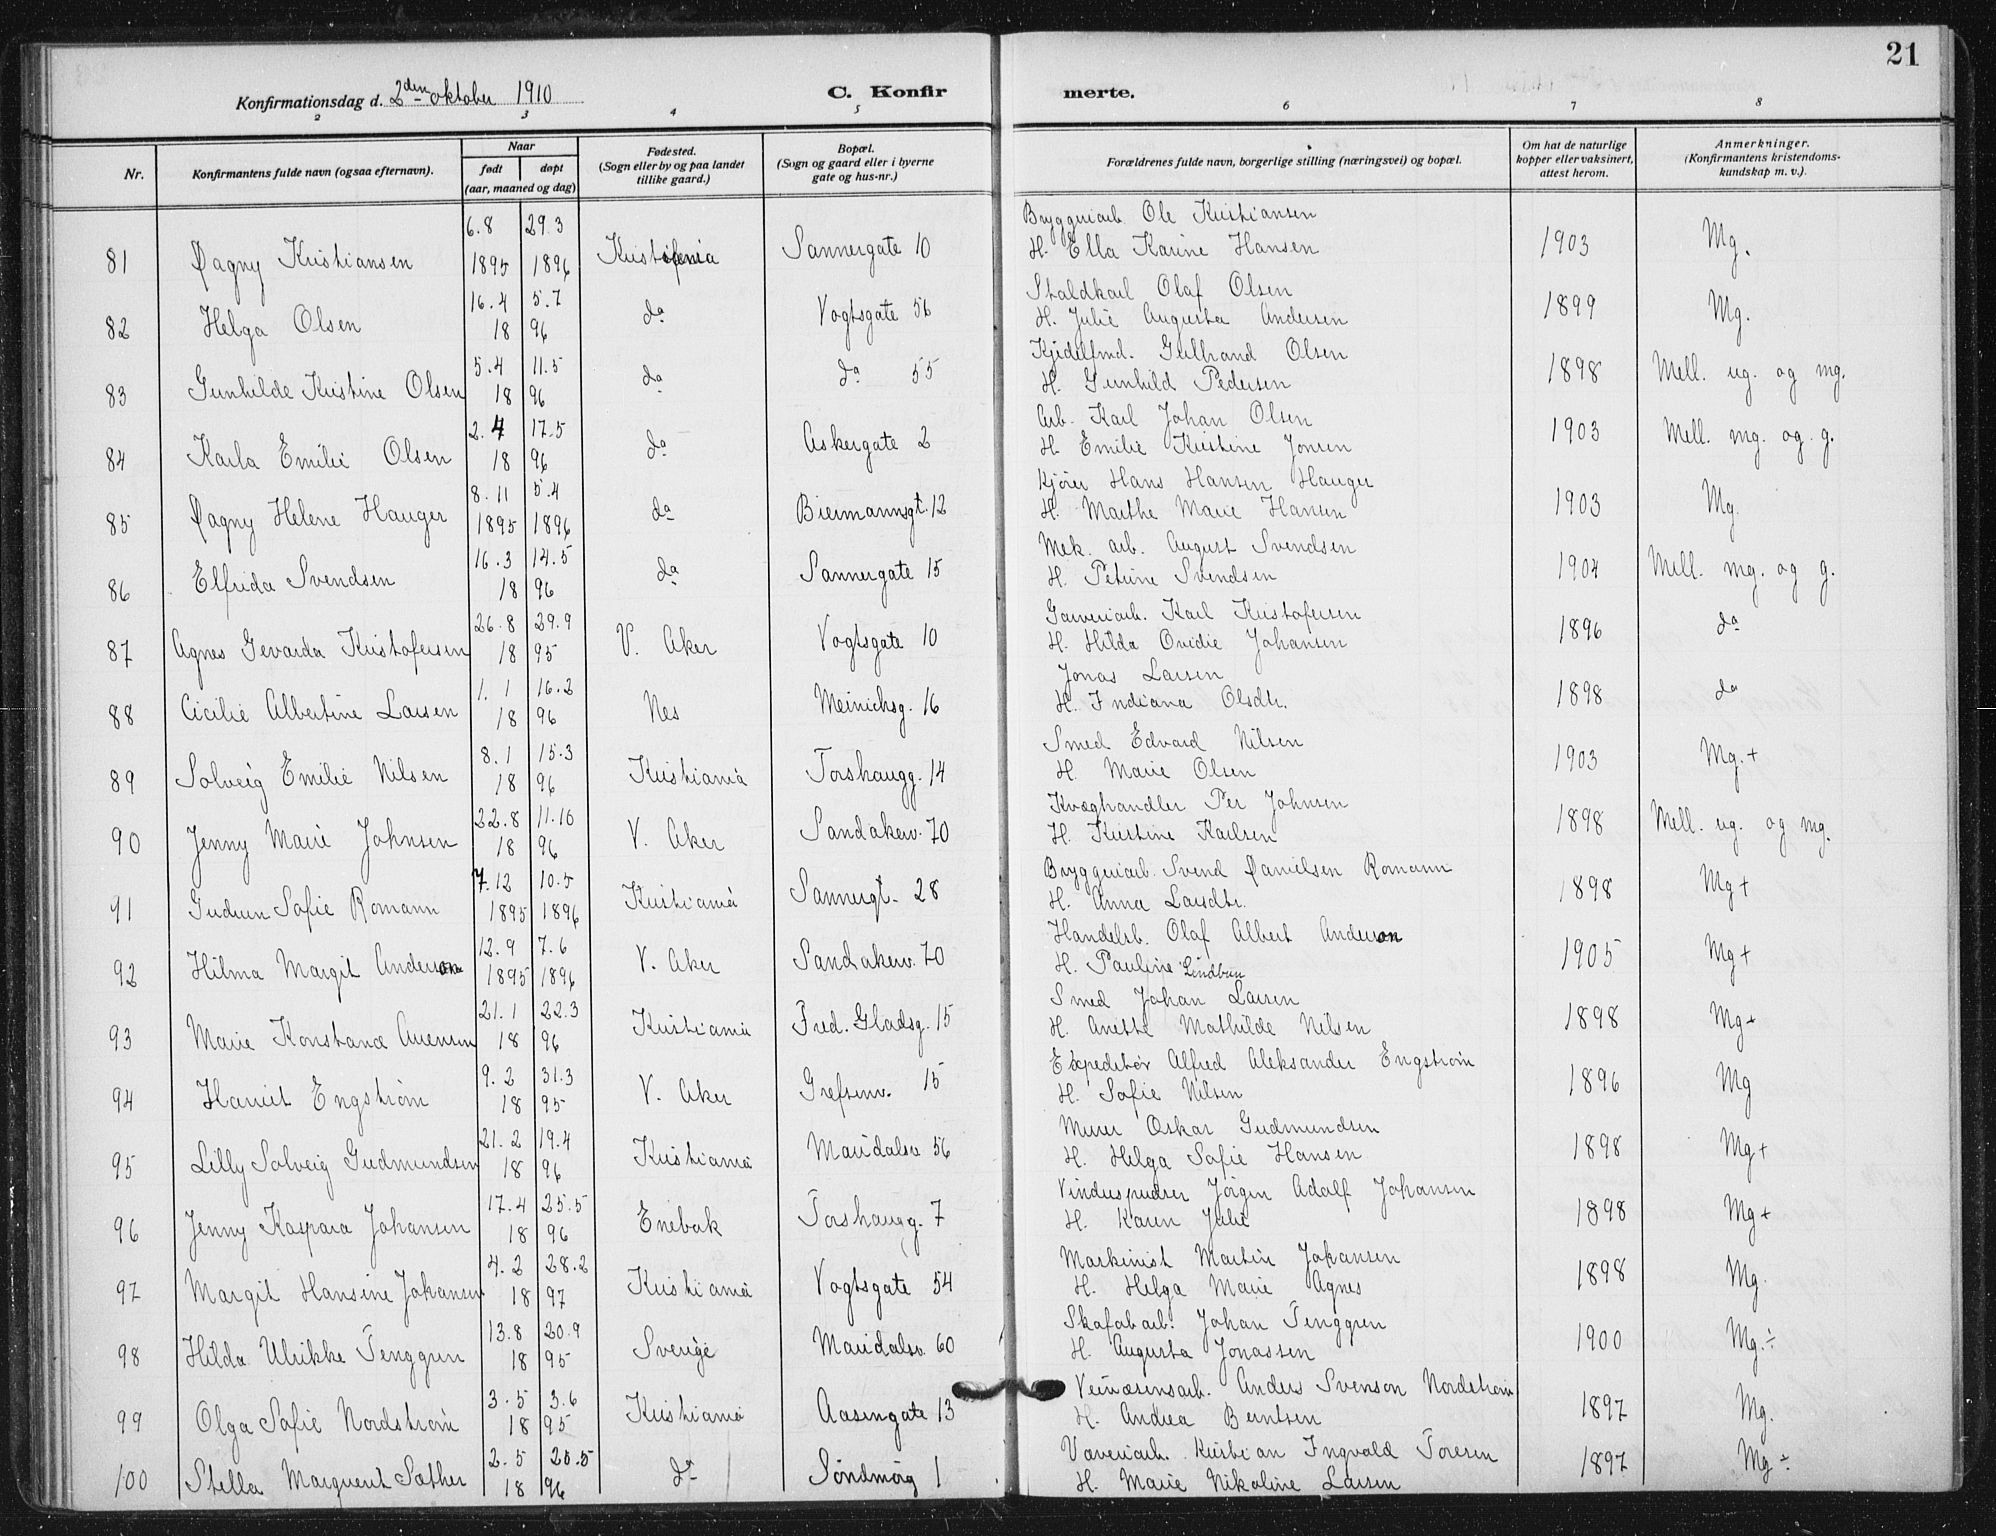 21
Konfirmationsdag d. 2den oktober 1910 C. Konfir merte.
2 3 4 5 6 7 8
Nr. Konfirmantens fulde navn (ogsaa efternavn). Naar Fødested. Bopæl. Forældrenes fulde navn, borgerlige stilling (næringsvei) og bopæl. Om hat de naturlige Anmerkninger.
født døpt (Sogn eller by og paa landet (Sogn og gaard eller i byerne kopper eller vaksinert, (Konfirmantens kristendoms-
(aar, maaned og dag) tillike gaard.) gate og hus-nr.) attest herom. kundskap m. v.).
6.8 29.3 Bryggeriarb Ole Kristiansen
81 Dagny Kristiansen 1895 1896 Kristiania Sannergate 10 H. Ella Karine Hansen 1903 Mg.
16.4 5.7 Staldkarl Olaf Olsen
82 Helga Olsen 18 96 da Vogtsgate 56 H. Julie Augusta Andersen 1899 Mg.
5.4 11.5 Kjedelfmd. Gulbrand Olsen
83 Gunhilde Kristine Olsen 18 96 da da 55 H. Gunhild Pedersen 1898 Mell. ug. og mg.
2.4 17.5 Arb. Karl Johan Olsen
84 Karla Emilie Olsen 18 96 da Askergate 2 H. Emilie Kristine Jonsen 1903 Mell. mg. og g.
8.11 5.4 Kjører Hans Hansen Hauger
85 Dagny Helene Hauger 1895 1896 da Biermannsgt. 12 H. Marthe Marie Hansen 1903 Mg.
16.3 14.5 Mek. arb. August Svendsen
86 Elfrida Svendsen 18 96 da Sannergate 15 H. Petrine Svendsen 1904 Mell. mg. og g.
26.8 29.9 Garveriarb. Karl Kristofersen
87 Agnes Gevarda Kristofersen 18 95 V. Aker Vogtsgate 10 H. Hilda Ovidie Johansen 1896 da
1.1 16.2 Jonas Larsen
88 Cicilie Albertine Larsen 18 96 Nes Meinichsg. 16 H. Indiana Olsdtr. 1898 da
8.1 15.3 Smed Edvard Nilsen
89 Solveig Emilie Nilsen 18 96 Kristiania Torshaugg. 14 H. Marie Olsen 1903 Mg.+
22.8 11.10 Kvæghandler Per Johnsen
90 Jenny Marie Johnsen 18 96 V. Aker Sandakerv. 70 H. Kristine Karlsen 1898 Mell. ug. og mg.
7.12 10.5 Bryggeriarb. Svend Danielsen Romann
91 Gudrun Sofie Romann 1895 1896 Kristiania Sannergt. 28 H. Anna Larsdtr. 1898 Mg+
12.9 7.6 Handelsb. Olaf Albert Anderson
92 Hilma Margit Anderson 1895 1896 V. Aker Sandakerv. 70 H. Pauline 1905 Mg+
21.1 22.3 Smed Johan Larsen
93 Marie Konstance 18 96 Kristiania Fred. Gladsg. 15 H. Anette Mathilde Nilsen 1898 Mg+
9.2 31.3 Expeditør Alfred Aleksander Engstrøm
94 Harriet Engstrøm 18 95 V. Aker Grefsenv. 15 H. Sofie Nilsen 1896 Mg
21.2 19.4 Murer Oskar Gudmundsen
95 Lilly Solveig Gudmundsen 18 96 Kristiania Maridalsv 56 H. Helga Sofie Hansen 1898 Mg+
17.4 25.5 Vinduspudser Jørgen Adolf Johansen
96 Jenny Kaspara Johansen 18 96 Enebak Torshaugg. 7 H. Karen Julie 1898 Mg+
4.2 28.2 Maskinist Martin Johansen
97 Margit Hansine Johansen 18 97 Kristiania Vogtsgate 54 H. Helga Marie Agnes 1898 Mg.
13.8 20.9 Skofabarb. Johan Tenggren
98 Hilda Ulrikke Tenggren 18 95 Sverige Maridalsv. 60 H. Augusta Jonassen 1900 Mg.÷
3.5 3.6 Veivæsensarb. Anders Svenson Nordstrøm
99 Olga Sofie Nordstrøm 18 95 Kristiania Aasengate 13 H. Andrea Berntsen 1897 Mg.
2.5 20.5 Væveriarb. Kristian Ingvald Toresen
100 Stella Margueret Sæther 18 96 da Søndmørg 1 H. Marie Nikoline Larsen 1897 Mg ÷